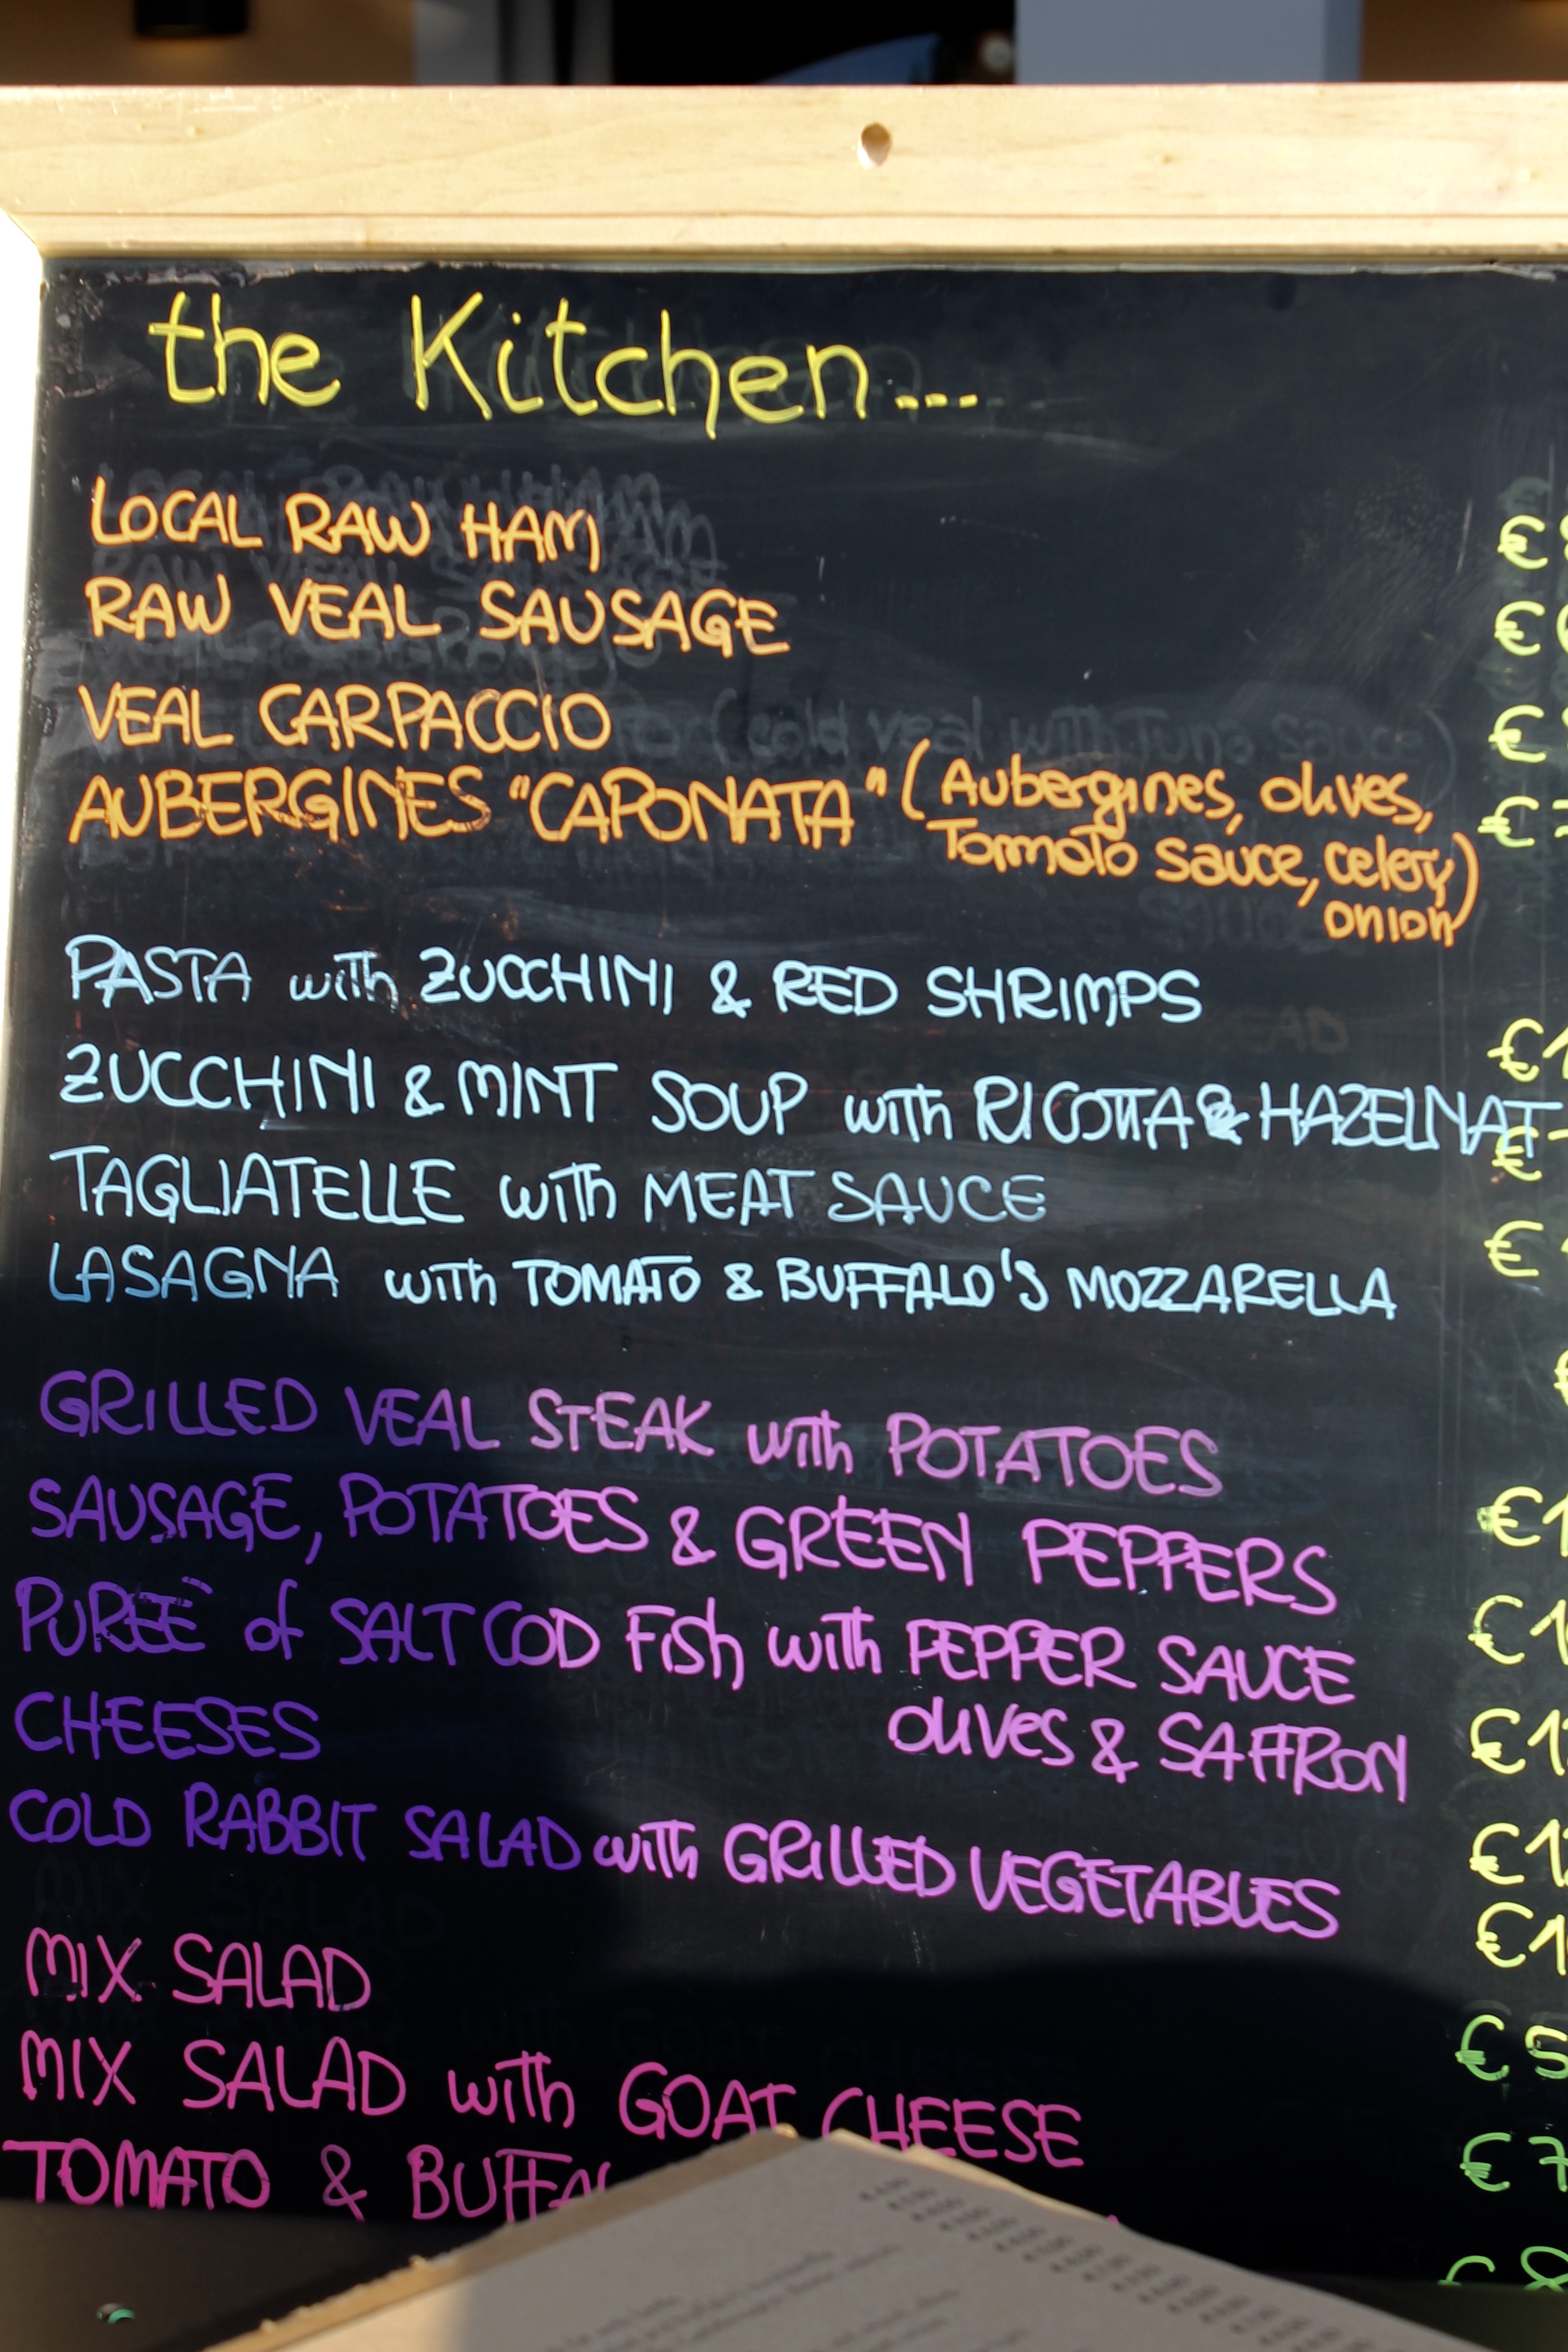 the Kitchen...
LOCAL RAW HAM €
RAW VEAL SAUSAGE €
VEAL CARPACCIO €
AUBERGINES "CAPONATA" (Aubergines, olives, €
Tomato sauce, celery)
onion
PASTA with ZUCCHINI & RED SHRIMPS €1
ZUCCHINI & MINT SOUP with RICOTTA & HAZELNAT €
TAGLIATELLE with MEAT SAUCE €
LASAGNA with TOMATO & BUFFALO'S MOZZARELLA €
GRILLED VEAL STEAK with POTATOES €1
SAUSAGE, POTATOES & GREEN PEPPERS €1
PUREÈ of SALT COD Fish with PEPPER SAUCE €1
olives & SAFFRON
CHEESES €1
COLD RABBIT SALAD with GRILLED VEGETABLES €1
MIX SALAD €5
MIX SALAD with GOAT CHEESE €7
TOMATO & €8